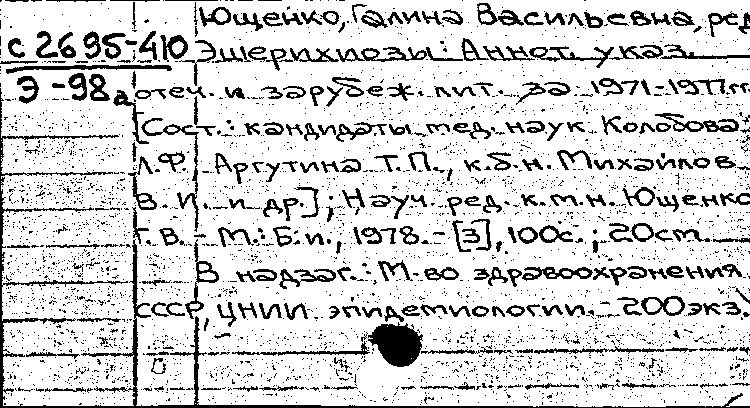 Ющенко, Галина Васильевна, ред
с 2695-410 Эшерихиозы: Аннот. указ.
Э-98а отеч. и зарубеж. лит. за 1971-1977гг
[Сост.: кандидаты мед. наук Колобова
Л.Ф. Аргутина Т.П., к.б.н. Михайлов
В.И. и др.]; Науч. ред. к.м.н. Ющенко
Г.В. - М.: Б.и., 1978. - [3], 100с.; 20см.
В надзаг.: М-во здравоохранения
СССР, ЦНИИ эпидемиологии. - 200экз.